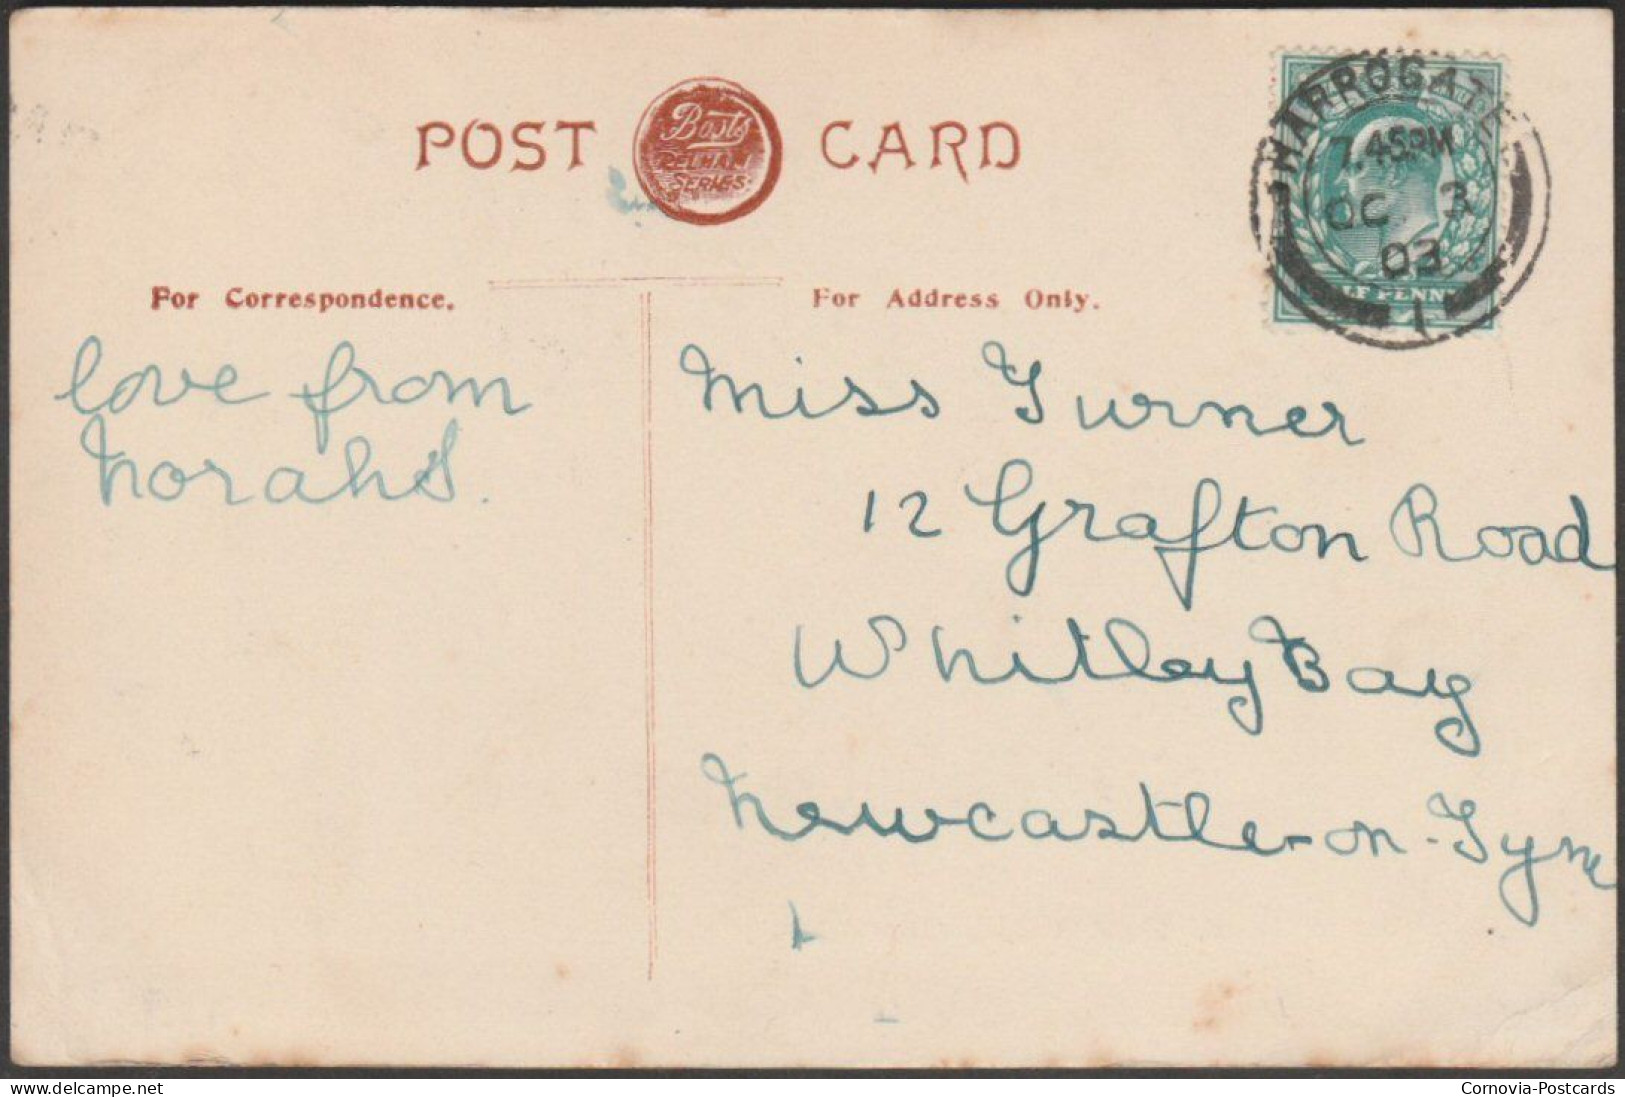 POST CARD
Boots
PELHAM
SERIES.
HARROGATE
7.45PM
OC 3
03
1
HALF PENNY
For Correspondence.
For Address Only.
love from
Norah S.
Miss Turner
12 Grafton Road
Whitley Bay
Newcastle-on-Tyne
Cornovia-Postcards